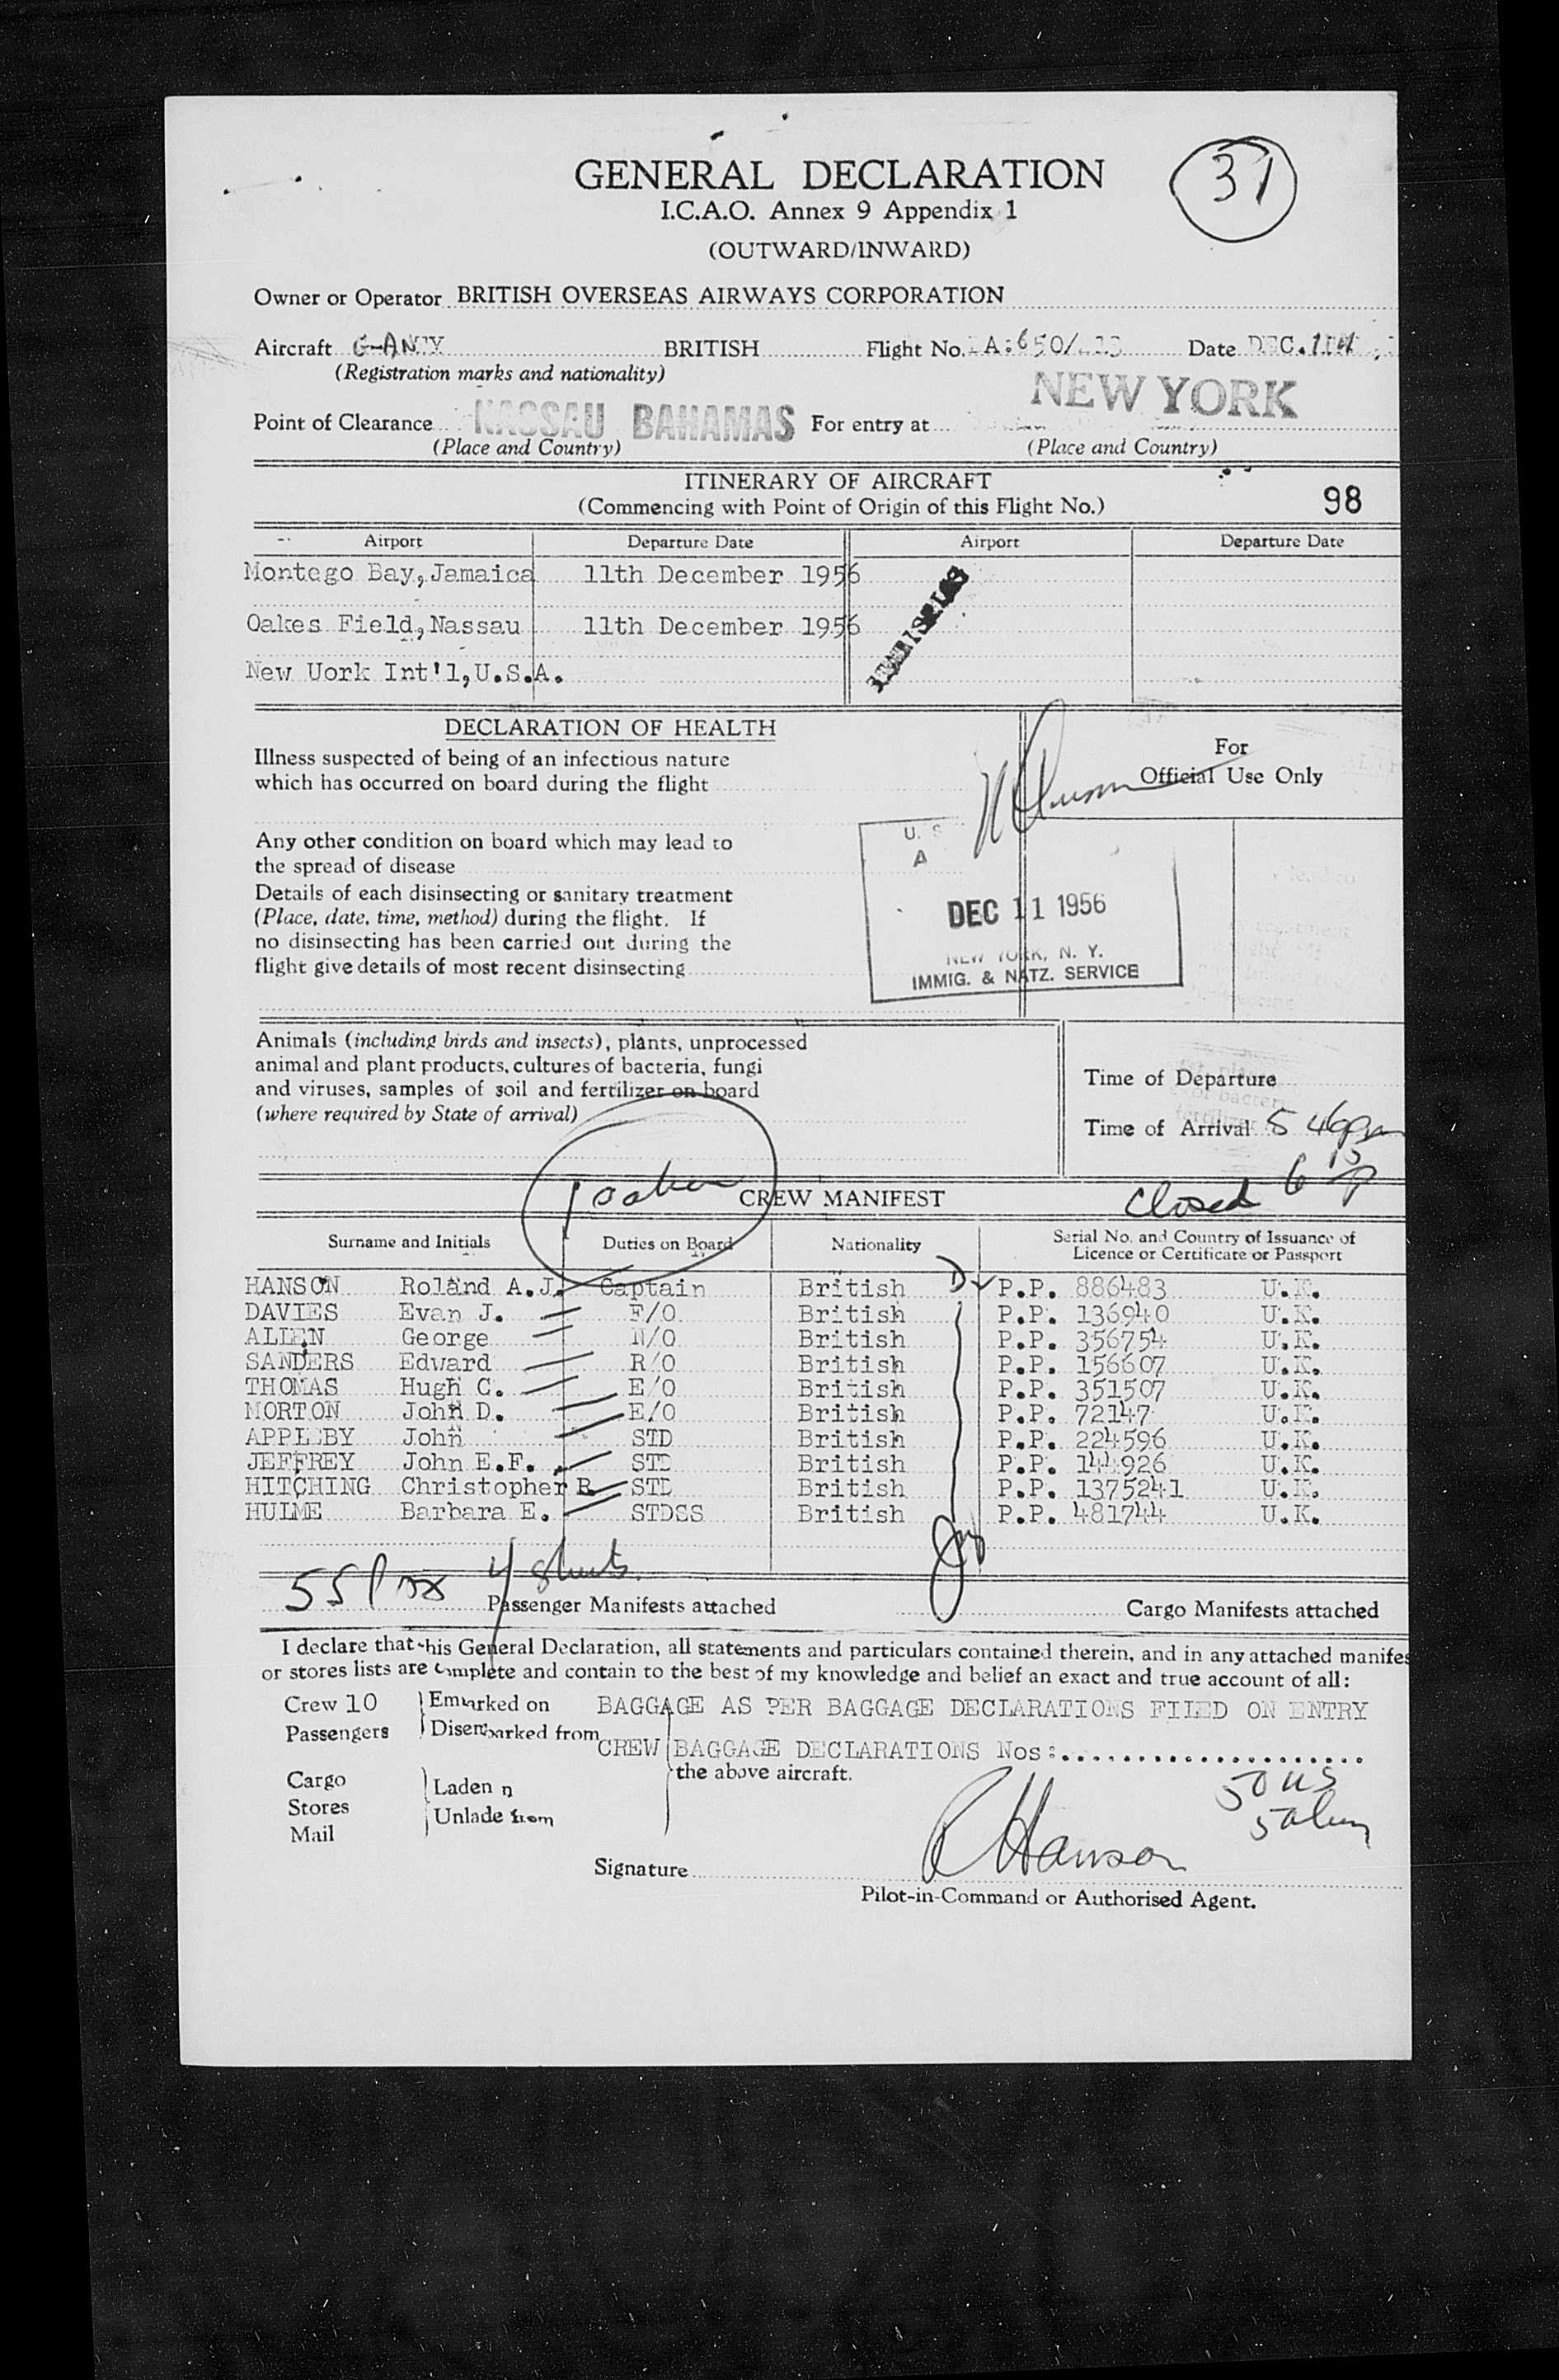 GENERAL DECLARATION
37
I.C.A.O. Annex 9 Appendix 1
(OUTWARD/INWARD)
Owner or Operator BRITISH OVERSEAS AIRWAYS CORPORATION
Aircraft BRITISH Flight No. Date
(Registration marks and nationality)
Point of Clearance NASSAU BAHAMAS For entry at NEW YORK
(Place and Country) (Place and Country)
ITINERARY OF AIRCRAFT
(Commencing with Point of Origin of this Flight No.) 98
Airport Departure Date Airport Departure Date
Montego Bay, Jamaica 11th December 1956
Oakes Field, Nassau 11th December 1956
New Uork Int'l, U.S.A.
DECLARATION OF HEALTH
For
Official Use Only
Illness suspected of being of an infectious nature
which has occurred on board during the flight
Any other condition on board which may lead to
the spread of disease
Details of each disinsecting or sanitary treatment
(Place, date, time, method) during the flight. If
no disinsecting has been carried out during the
flight give details of most recent disinsecting
U. S
A
DEC 11 1956
NEW YORK, N. Y.
IMMIG. & NATZ. SERVICE
Animals (including birds and insects), plants, unprocessed
animal and plant products, cultures of bacteria, fungi
and viruses, samples of soil and fertilizer on board
(where required by State of arrival)
Time of Departure
Time of Arrival 5 46pm
Closed 6 15 p
CREW MANIFEST
Surname and Initials Duties on Board Nationality Serial No. and Country of Issuance of Licence or Certificate or Passport
HANSON Roland A.J. Captain British P.P. 886483 U.K.
DAVIES Evan J. F/O British P.P. 136940 U.K.
ALLEN George N/O British P.P. 356754 U.K.
SANDERS Edward R/O British P.P. 156607 U.K.
THOMAS Hugh C. E/O British P.P. 351507 U.K.
MORTON John D. E/O British P.P. 72147 U.K.
APPLEBY John STD British P.P. 224596 U.K.
JEFFREY John E.F. STD British P.P. 144926 U.K.
HITCHING Christopher R. STD British P.P. 1375241 U.K.
HULME Barbara E. STDSS British P.P. 481744 U.K.
55 Pax 4 sheets
Passenger Manifests attached Cargo Manifests attached
I declare that this General Declaration, all statements and particulars contained therein, and in any attached manifes
or stores lists are complete and contain to the best of my knowledge and belief an exact and true account of all:
Crew 10 Embarked on BAGGAGE AS PER BAGGAGE DECLARATIONS FILED ON ENTRY
Passengers Disembarked from
CREW BAGGAGE DECLARATIONS Nos:
the above aircraft.
Cargo Laden n
Stores Unlade from
Mail
50 US
5 alien
Signature R Hanson
Pilot-in-Command or Authorised Agent.